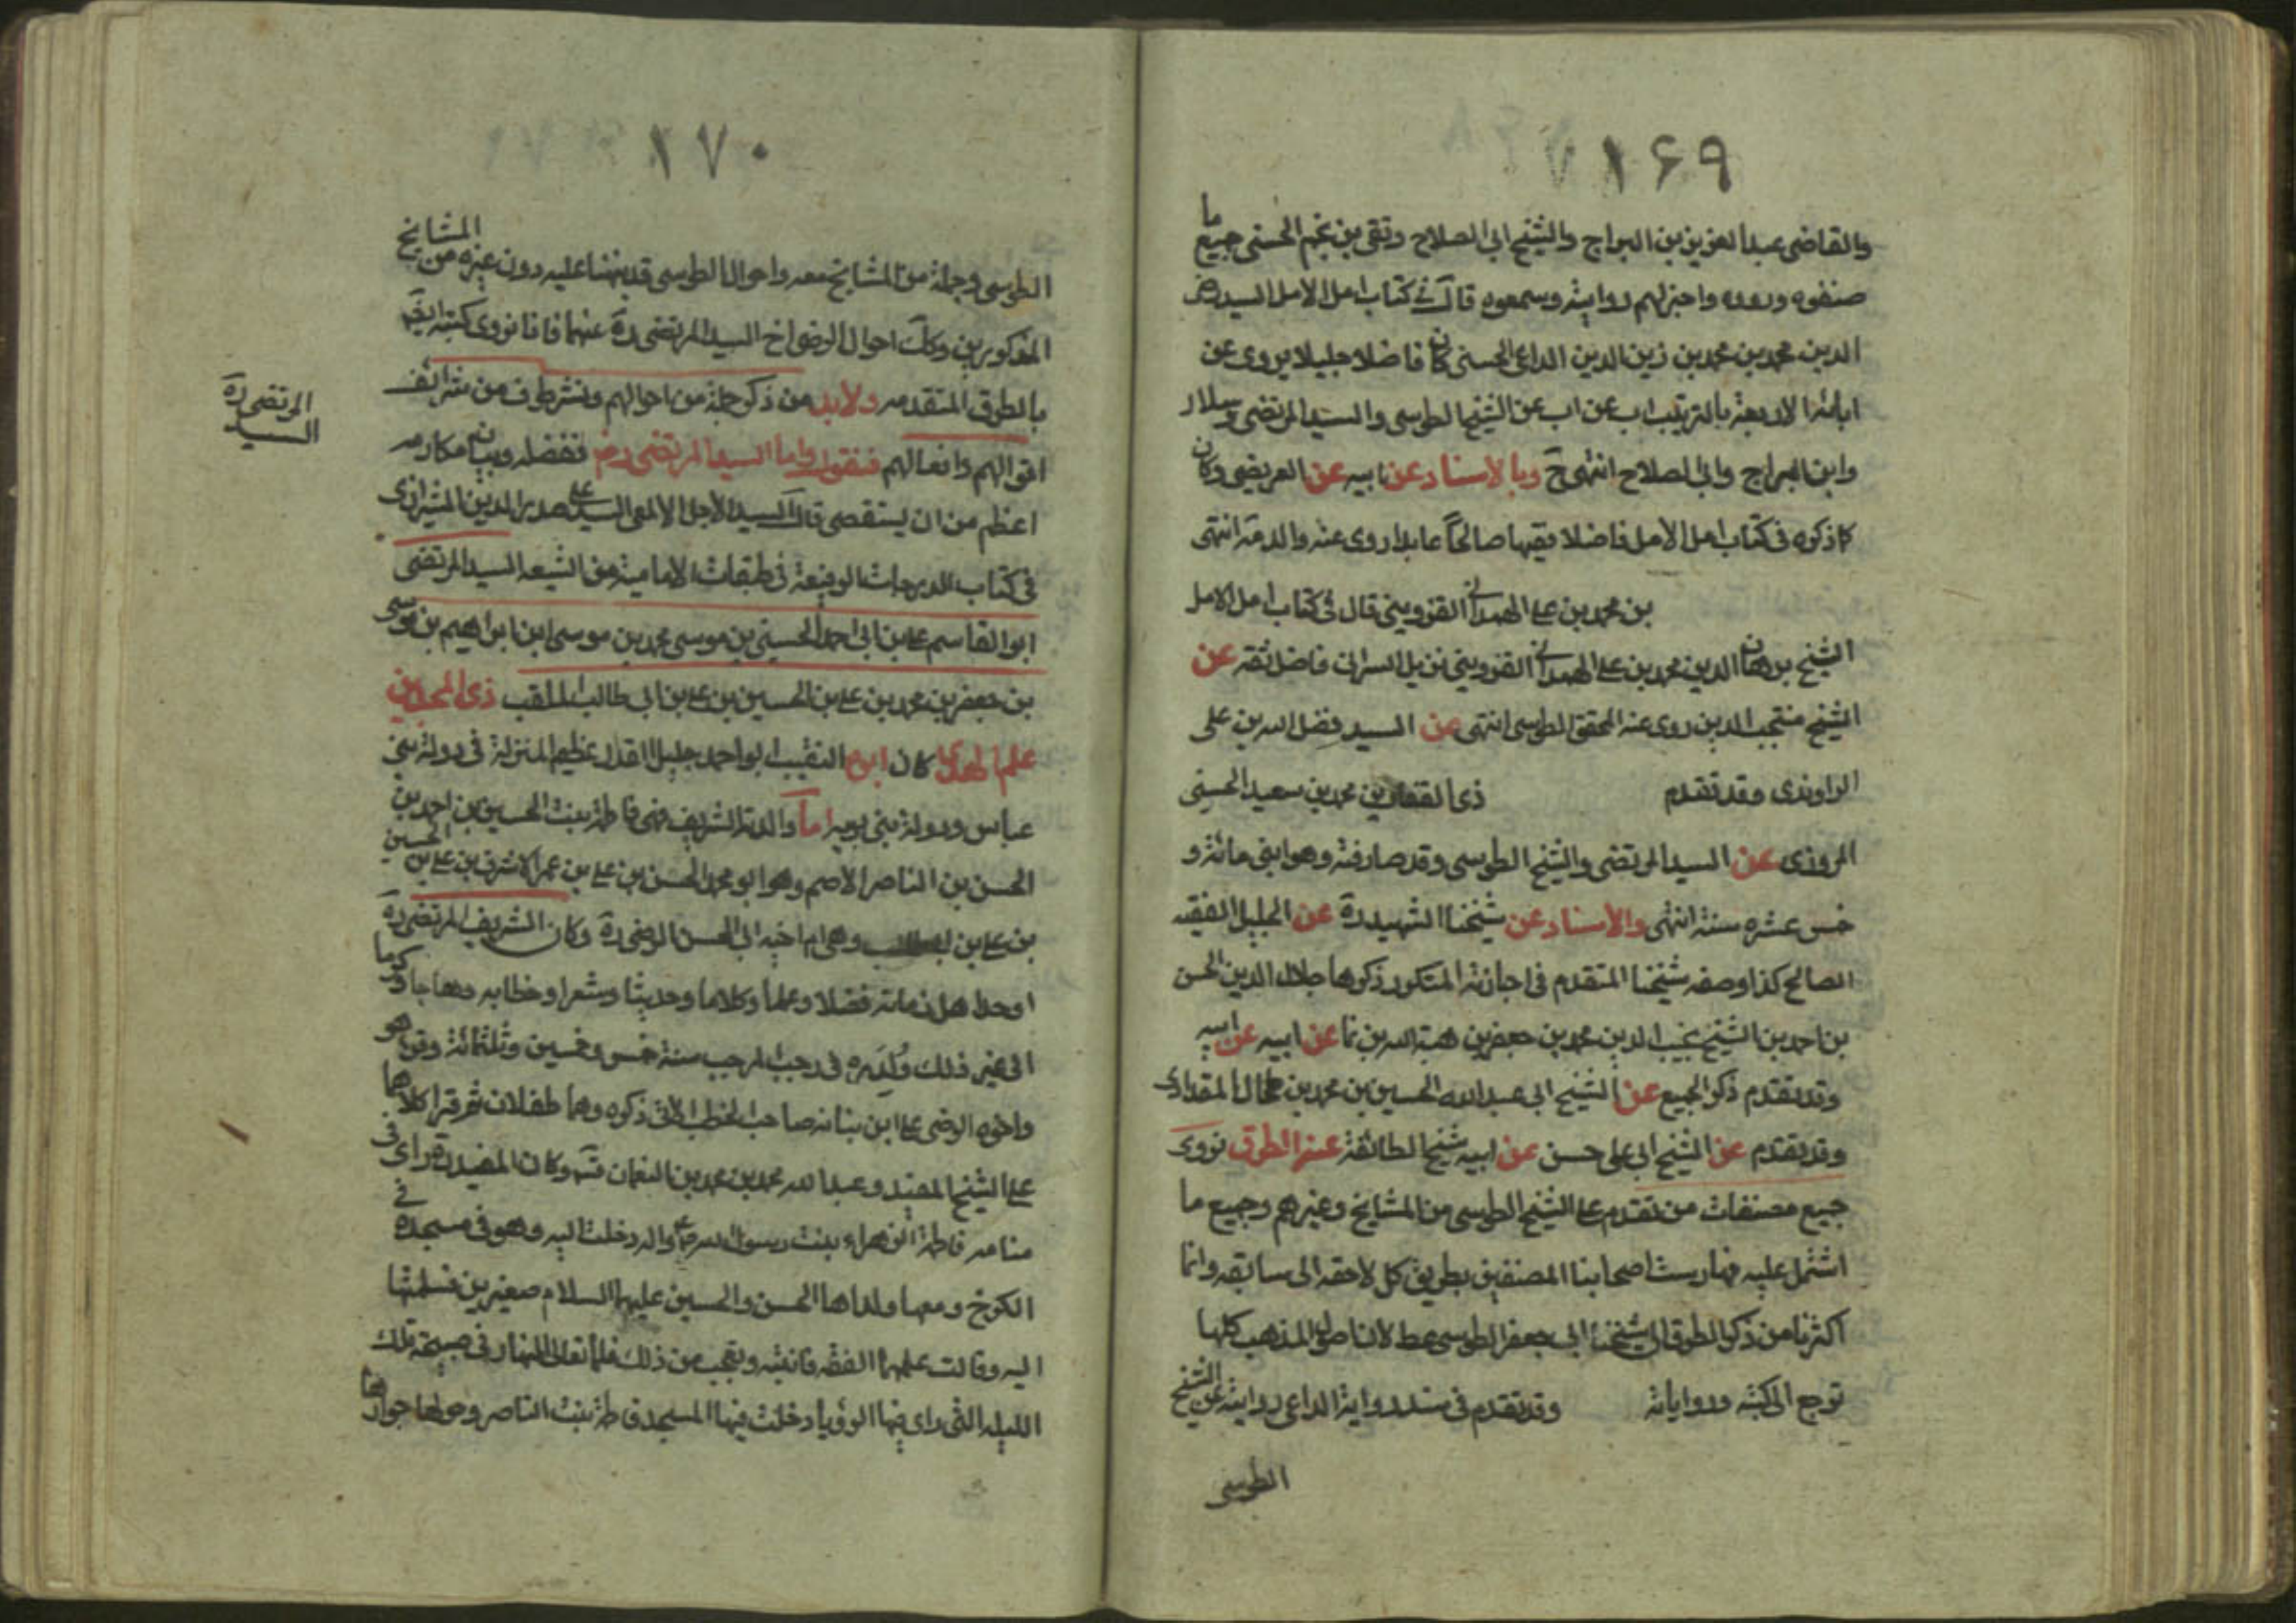 ۱۶۹
والقاضى عبد العزيز بن البراج والشيخ ابى الصلاح وتقى بن نجم الحسنى جميع ما
صنفوه ورووه واجيز لهم روايته وسمعوه قال فى كتاب امل الامل السيد رضى
الدين محمد بن محمد بن زين الدين الداعى الحسنى كان فاضلا جليلا يروى عن
ابائه الاربعة بالترتيب اب عن اب عن الشيخ الطوسى والسيد المرتضى وسلار
وابن البراج وابى الصلاح انتهى ح وبالاسناد عن ابيه عن العريضى وكان
كما ذكره فى كتاب امل الامل فاضلا فقيها صالحا عابدا روى عنه والد مة انتهى
بن محمد بن على الهمدانى القزوينى قال فى كتاب امل الامل
الشيخ برهان الدين محمد بن على الهمدانى القزوينى نزيل الرى فاضل ثقه عن
الشيخ منتجب الدين روى عنه المحقق الطوسى انتهى عن السيد فضل الله بن على
الراوندى وقد تقدم ذى الفقار بن محمد بن سعيد الحسينى
المروزى عن السيد المرتضى والشيخ الطوسى وقد صادفته وهو ابنى مائة و
خمس عشره سنة انتهى والاسناد عن شيخنا الشهيد ره عن الجليل الفقيه
الصالح كذا وصفه شيخنا المتقدم فى اجازته المتكرر ذكرها جلال الدين الحسن
بن احمد بن الشيخ نجيب الدين محمد بن جعفر بن هبة الله بن نما عن ابيه عن ابيه
وقد تقدم ذكر الجميع عن الشيخ ابى عبد الله الحسين بن محمد بن طحال المقدادى
وقد تقدم عن الشيخ ابى على حسن عن ابيه شيخ الطائفة عنه الطرق نروى
جميع مصنفات من تقدم على الشيخ الطوسى من المشايخ وغيرهم وجميع ما
اشتمل عليه فهارست اصحابنا المصنفين بطريق كل لاحقه الى سابقه وانما
اكثرنا من ذكر الطرق الى شيخنا ابى جعفر الطوسى عط لان اصل المذهب كلها
ترجع الى كتبه ورواياته وقد تقدم فى سند رواية الداعى روايته عن الشيخ
الطوسى
۱۷۰
الطوسى وجملة من المشايخ معه واحوال الطوسى قد نبهنا عليه دون غيره من المشايخ
المذكورين وكذا احوال الرضى اخ السيد المرتضى ره عنهما فانا نروى كتبه ايضا
بالطرق المتقدمه ولابد من ذكر جملة من احوالهم ونشر طرف من شرائف
اقوالهم وافعالهم فنقول واما السيد المرتضى رض ففضله وبيان مكارمه
اعظم من ان يستقصى قال السيد الاجل الالمعى السيد على صدر الدين الشيرازى
فى كتاب الدرجات الرفيعة فى طبقات الامامية من الشيعه السيد المرتضى
المرتضى ره
السيد
ابو القاسم على بن ابى احمد الحسينى بن موسى محمد بن موسى ابن ابراهيم بن موسى
بن جعفر بن محمد بن على بن الحسين بن على بن ابى طالب الملقب ذى المجدين
علم الهدى كان ابوه النقيب ابو احمد جليل القدر عظيم المنزلة فى دولة بنى
عباس ودولة بنى بويه اما والدته الشريف فهى فاطمة بنت الحسين بن احمد بن
الحسن بن الناصر الاصم وهو ابو محمد الحسن بن على بن عمر الاشرف بن على بن الحسين
بن على بن ابيطالب وهى ام اخيه ابى الحسن الرضى ره وكان الشريف المرتضى ره
اوحد اهل زمانه فضلا وعلما وكلاما وحديثا وشعرا وخطابه وجاها وكرما
الى غير ذلك ولد ره فى رجب المرجب سنة خمس وخمسين وثلثمائة وقرا هو
واخوه الرضى على ابن نباته صاحب الخطب الاتى ذكره وهما طفلان ثم قرا كلاهما
على الشيخ المفيد وعبد الله محمد بن محمد بن النعمان قده وكان المفيد ره راى فى
منامه فاطمة الزهراء بنت رسول الله ص واله دخلت اليه وهو فى مسجده فى
الكرخ ومعها ولداها الحسن والحسين عليهما السلام صغيرين فسلمتهما
اليه وقالت علمهما الفقه فانتبه وتعجب من ذلك فلما تعالى النهار فى صبيحة تلك
الليله التى راى فيها الرؤيا دخلت فيها المسجد فاطمة بنت الناصر وحولها جواريها